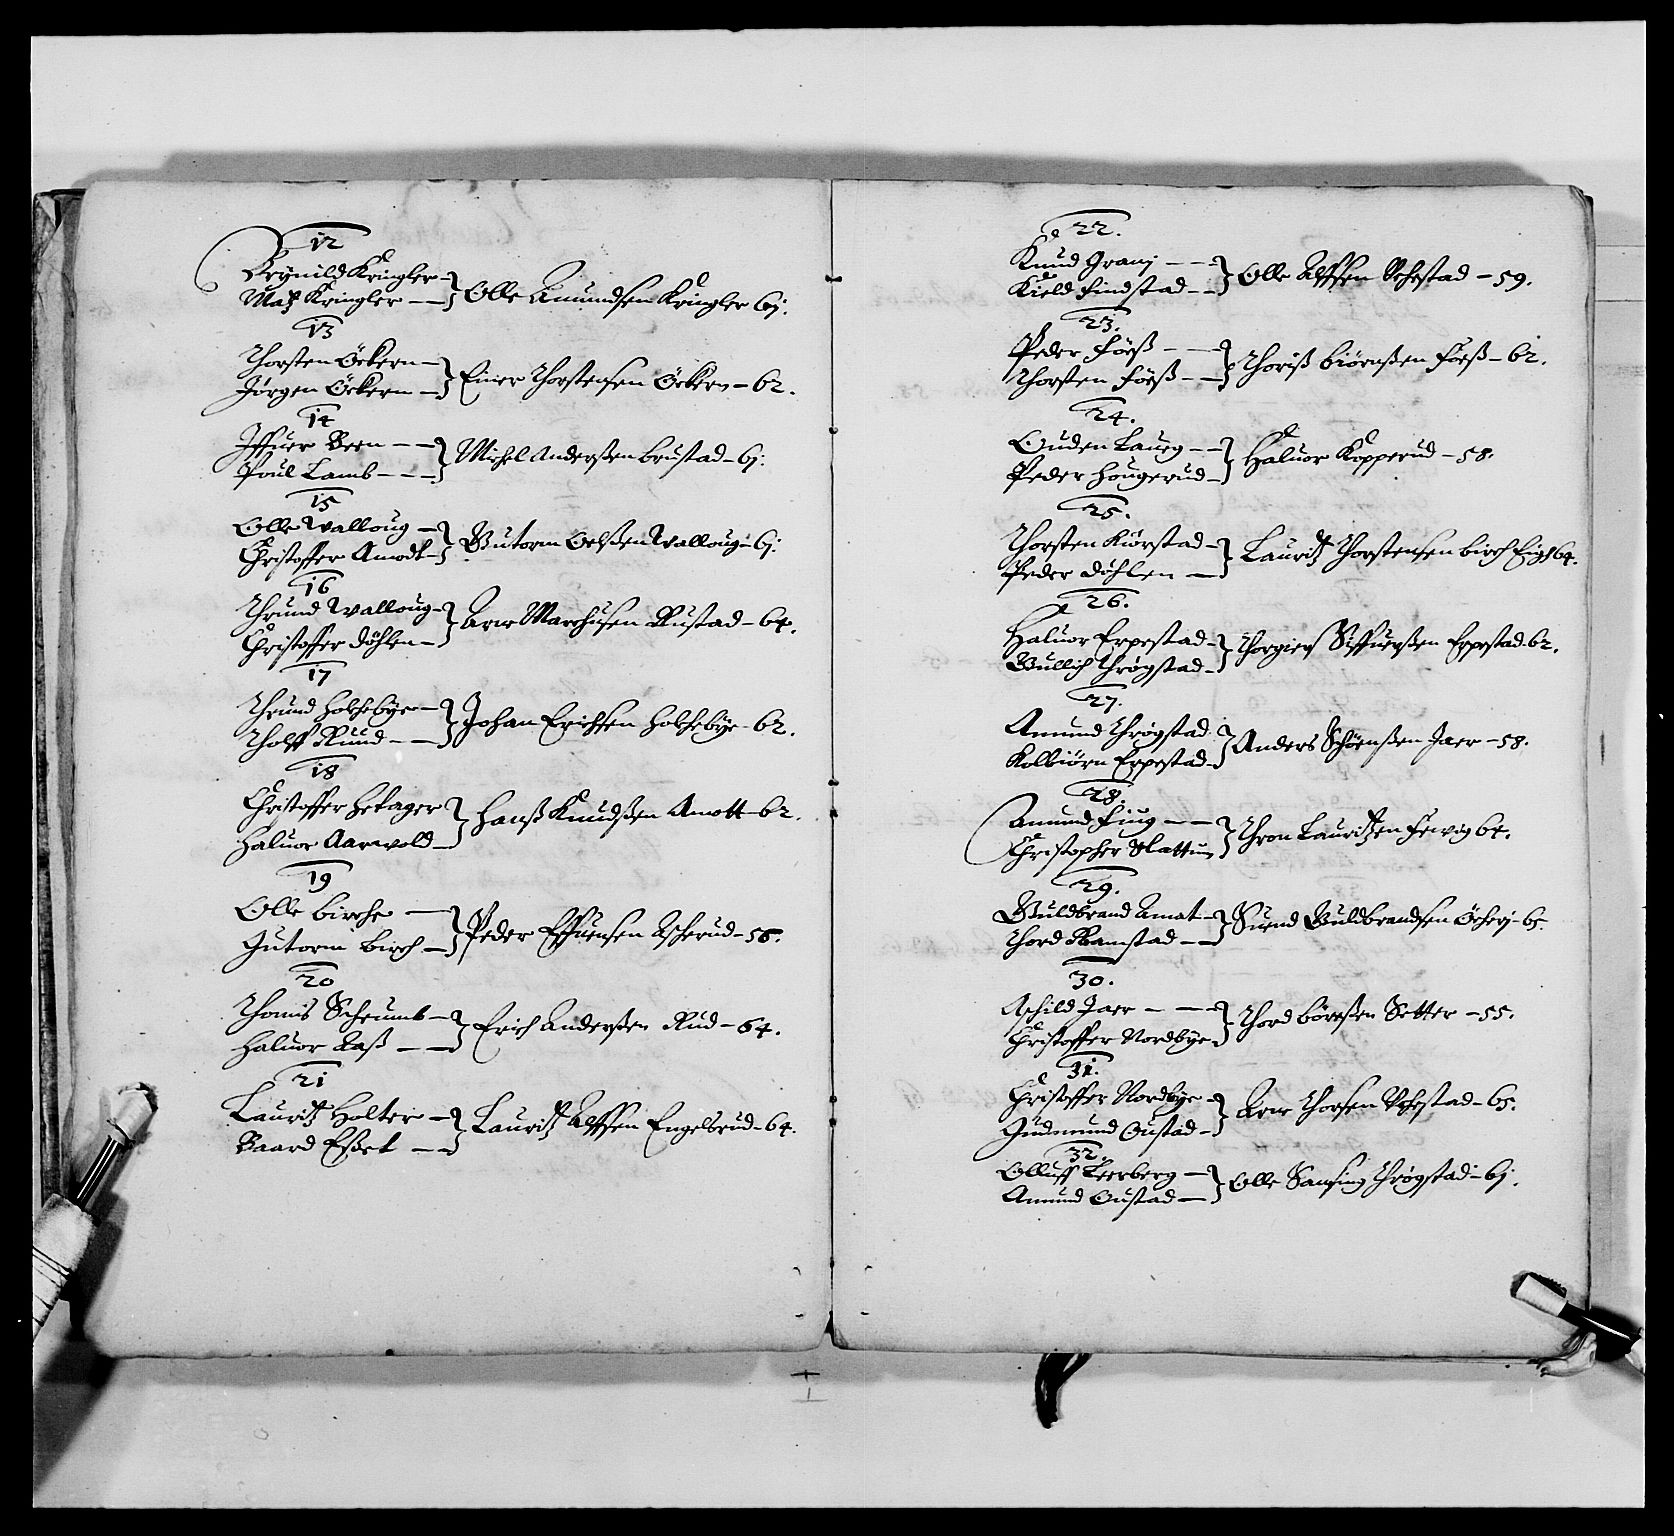 12
Brynild Kringler —
Matz Kringler — } Olle Amundsen Kringler 6j.
13
Thorsten Öckern —
Jörgen Öckern — } Einer Thorstensen Öckern – 62.
14
Iffuer Been — —
Poul Lamb — — } Michel Anderßen brustad – 6j.
15
Olle Walloug —
Christoffer Amodt — } Gutorm Oelßen Walloug – 6j.
16
Thrund Walloug –
Christoffer döhlen — } Arne Marchusen Rustad – 64.
17
Thrund holchebye —
Tholff Ruud — — } Johan Erichsen holchebye – 62.
18
Christoffer hexager
Haluor Aarwold — } Hanß Knudßen Amott – 62.
19
Olle birche —
Gutorm birch — } Peder Effuensen Ascherud – 56.
20
Thomis Scheumb —
Haluor Aaß — — } Erich Anderßen Rud – 64.
21
Lauritz Holter —
Baard Eßet — — } Lauritz Alffsen Engelsrud – 64.
22.
Knud Granj — —
Kield findstad — } Olle Alffsen Schestad – 59.
23.
Peder föeß — —
Thorsten föeß — } Thoriß biörnßen föeß – 62.
24.
Guden Laueg — —
Peder Hougerud — } Haluor Kopperud – 58.
25.
Thorsten Kiörstad —
Peder döhlen — } Lauritz Thorstensen birch Eigt 64.
26.
Haluor Erpestad —
Gullich Thrögstad — } Thorgiers Siffuerßen Erpestad – 62.
27.
Amund Thrögstad
Kolbiörn Erpestad — } Anders Schöenßen Jaer – 58.
28.
Amund fiug — —
Christopher Slattum } Thron Lauritzen fewig 64.
29.
Guldbrand Amat —
Thord Ramstad — — } Suend Guldbrandsen Öcherj – 65.
30.
Aschild Jaer — —
Christoffer Nordbye } Thord börreßen Setter – 55.
31.
Christoffer Nordbye —
Gudmund Oustad — } Arne Thorsen Schestad – 65.
32.
Olluff Leerberg —
Amund Oustad — } Olle Hansing Thrögstad – 6j.